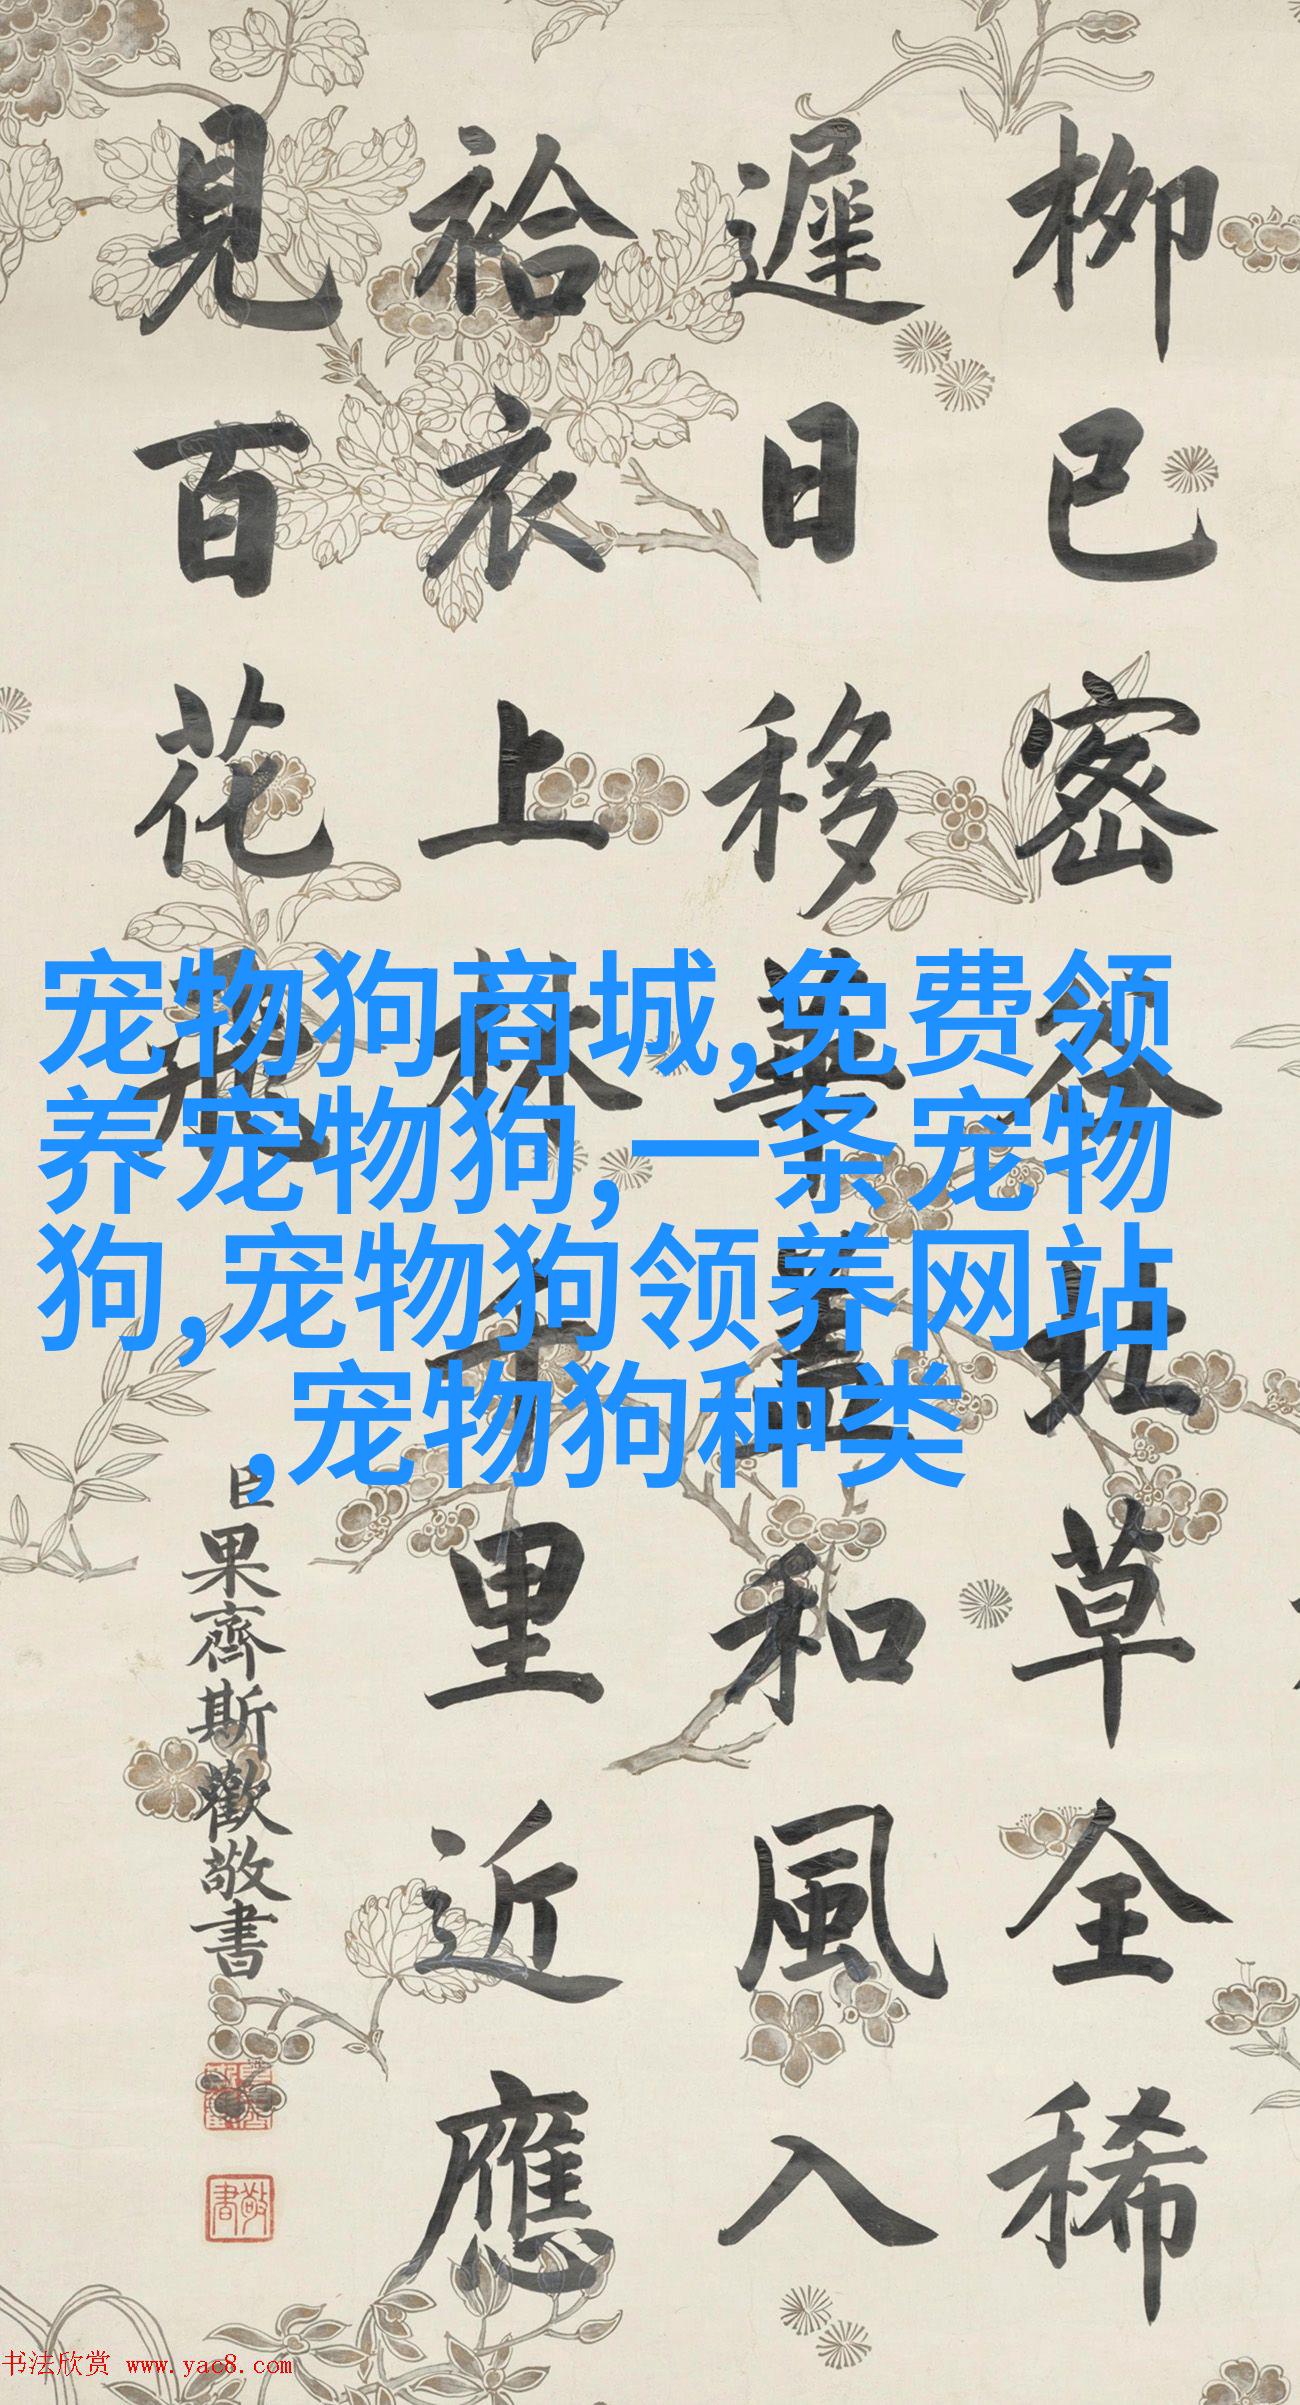 柳已密草全稀
遲日移華蓋和風入
袷衣上林千里近應
見百花飛
臣果齊斯歡敬書
敬書
宠物狗商城,免费领
养宠物狗,一条宠物
狗,宠物狗领养网站
,宠物狗种类
书法欣赏 www.yac8.com